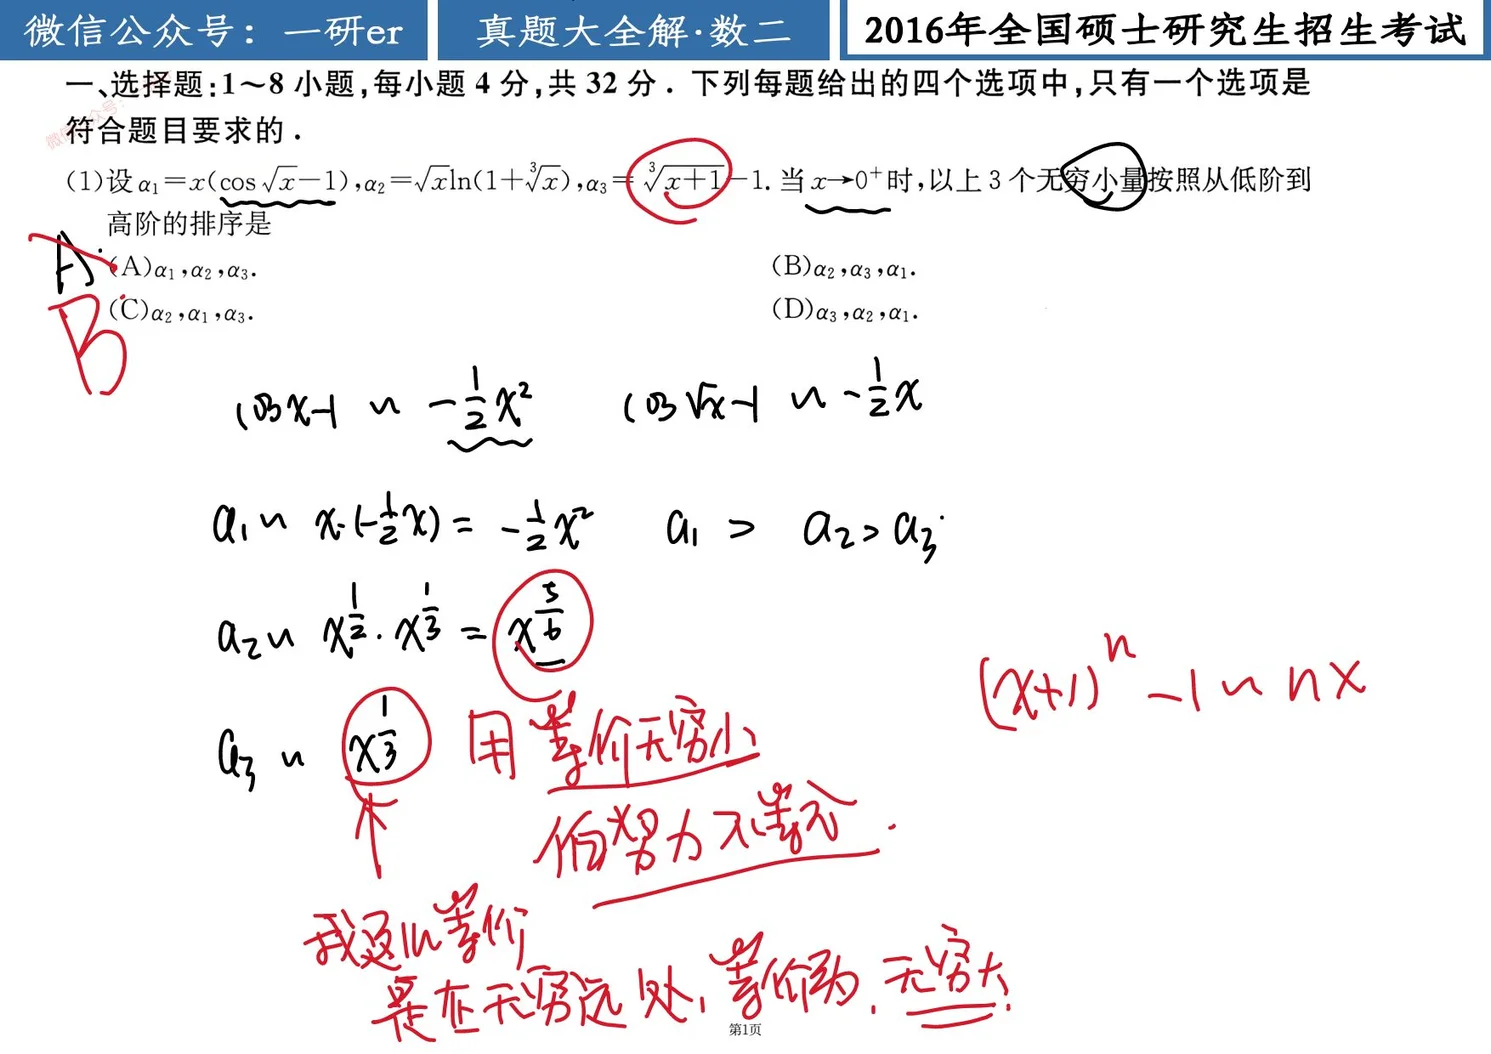 微信公众号：一研er
真题大全解·数二
2016年全国硕士研究生招生考试
一、选择题:1～8 小题,每小题 4 分,共 32 分．下列每题给出的四个选项中,只有一个选项是
符合题目要求的．
(1)设 α₁=x(cos√x−1),α₂=√xln(1+∛x),α₃=∛(x+1)−1.当 x→0⁺时,以上 3 个无穷小量按照从低阶到
高阶的排序是
A
(A)α₁,α₂,α₃.
(B)α₂,α₃,α₁.
B
(C)α₂,α₁,α₃.
(D)α₃,α₂,α₁.
cosx-1 ~ -1/2 x²
cos√x-1 ~ -1/2 x
a₁ ~ x·(-1/2 x) = -1/2 x²
a₁ > a₂ > a₃
a₂ ~ x^(1/2) · x^(1/3) = x^(5/6)
(x+1)ⁿ -1 ~ nx
a₃ ~ x^(1/3)
用等价无穷小
是在无穷远处，等价为，无穷大
第1页